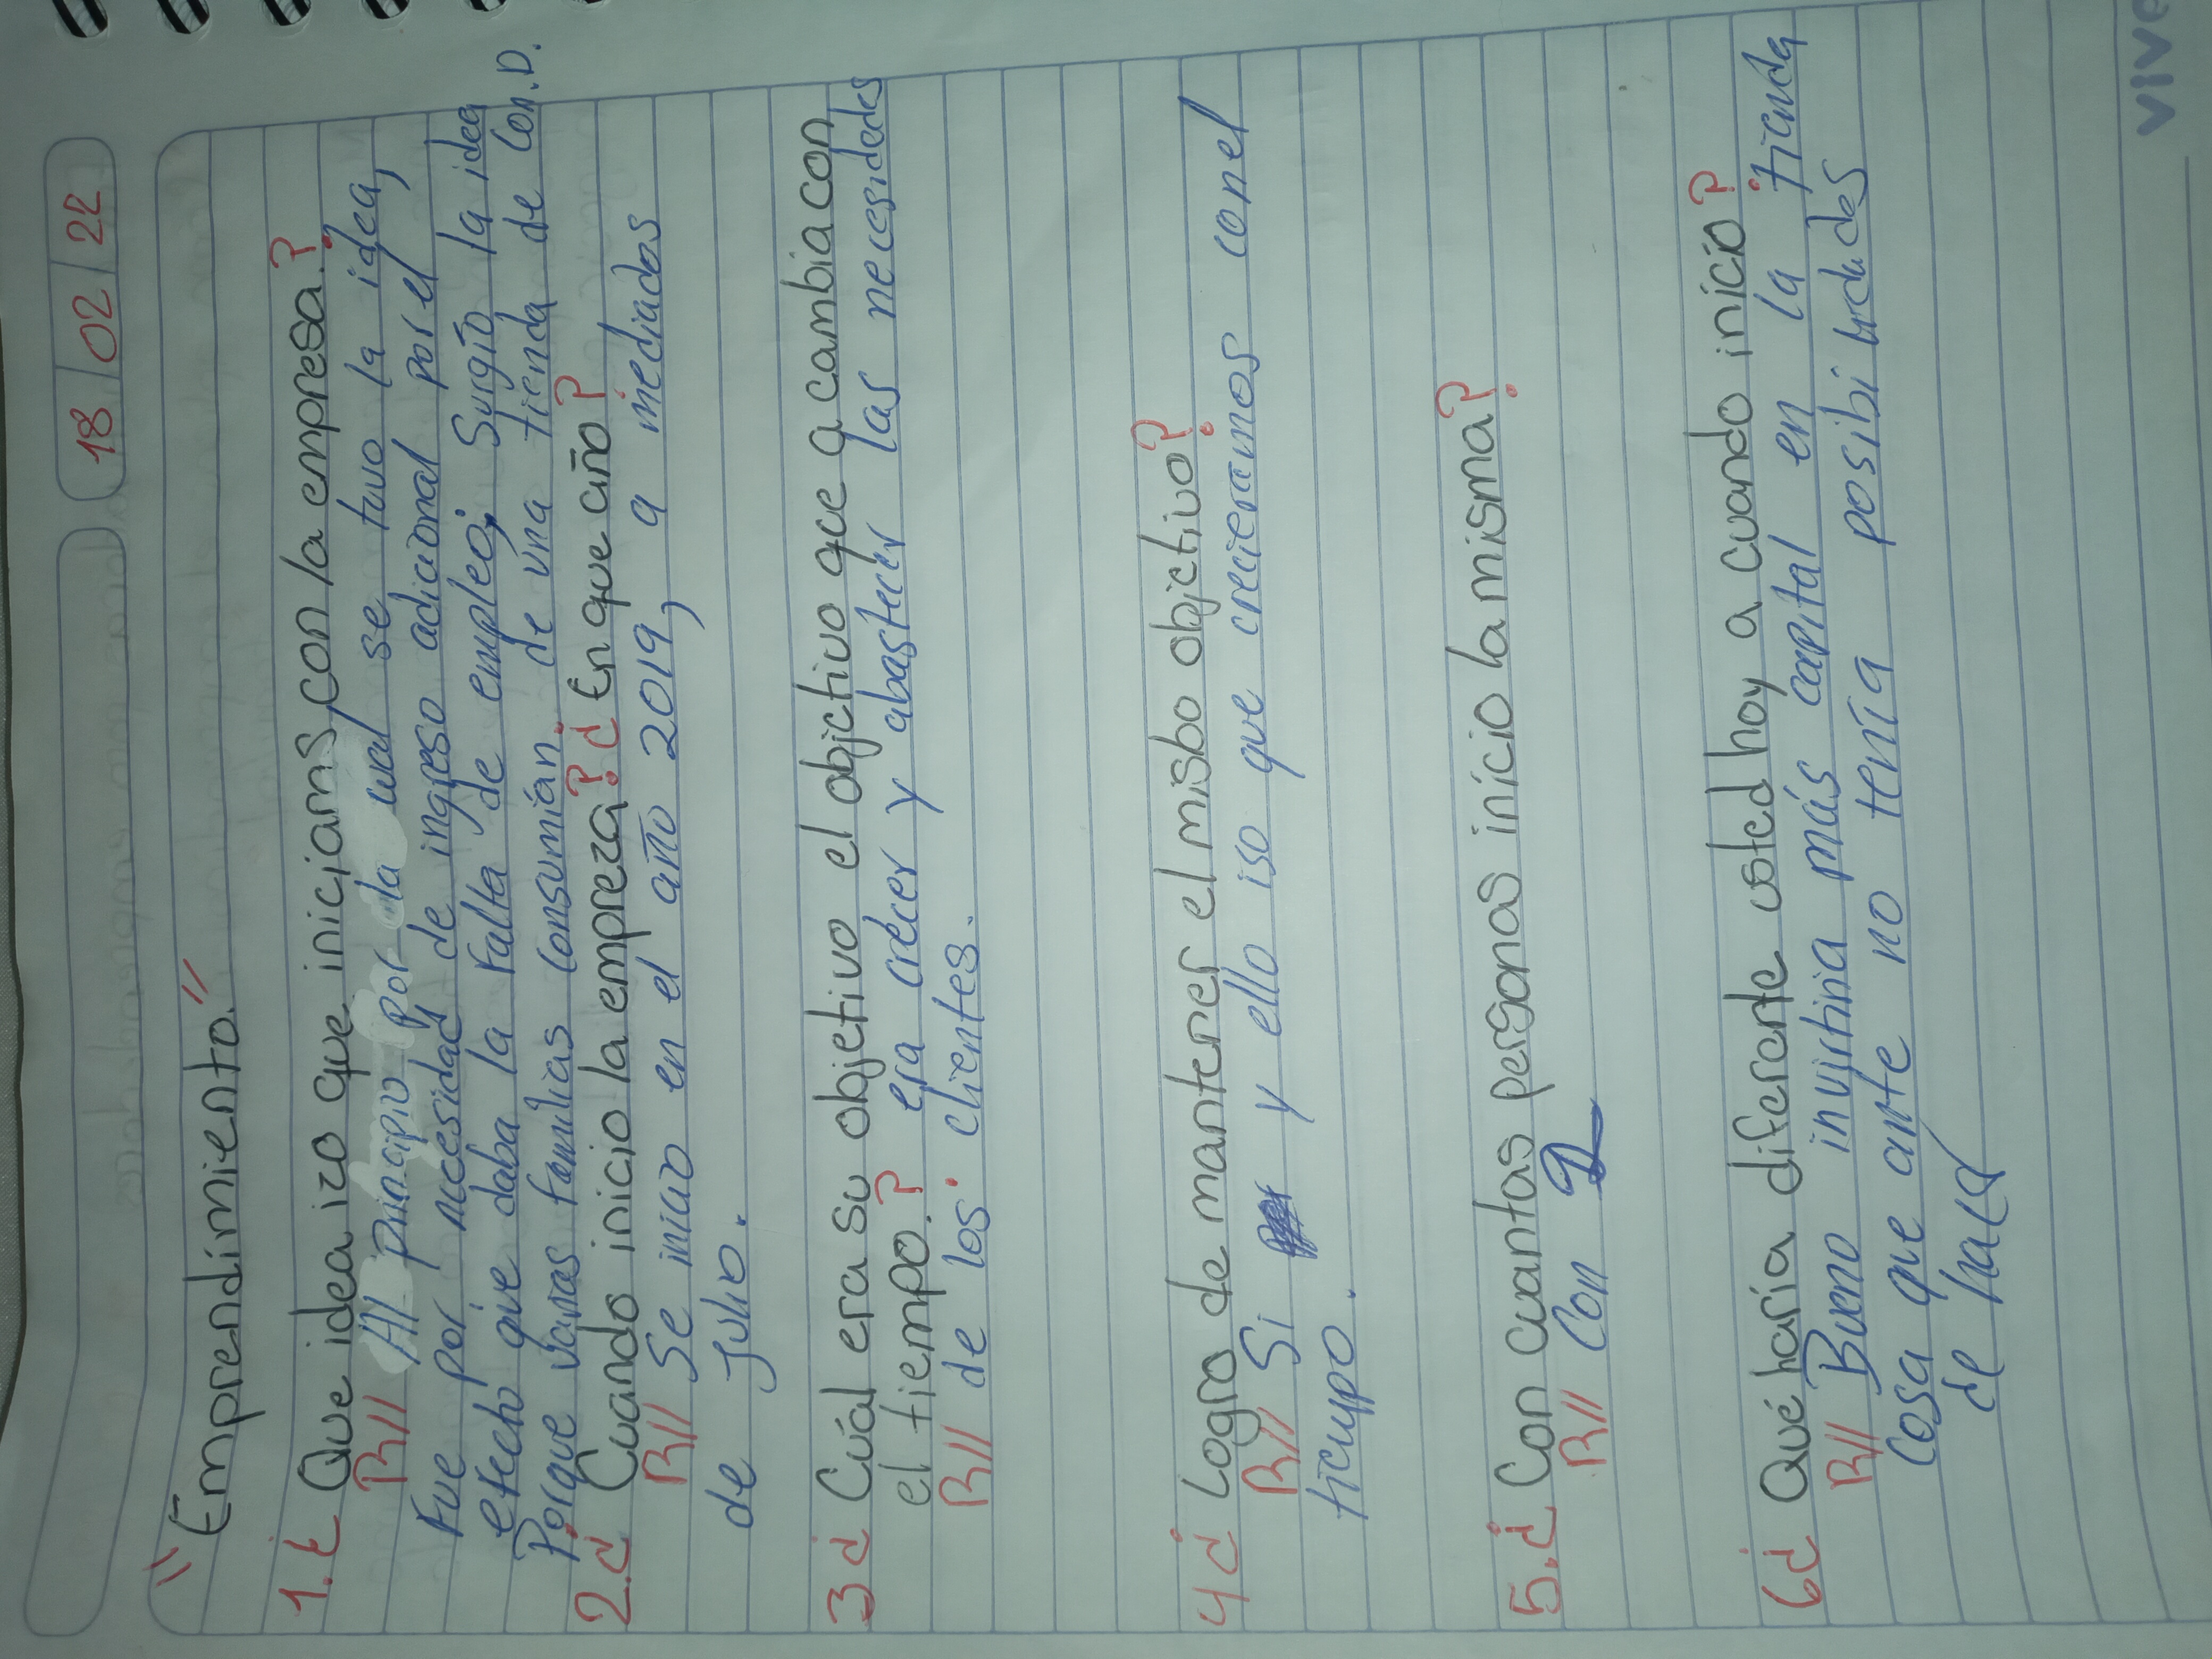 18/02/22
"Emprendimiento."
1.¿ Que idea izo que iniciams, con la empresa.?
R// Al principio por la cual se tuvo la idea,
Fue por necesidad de ingreso adicional por el
efecto que daba la falta de empleo; Surgío la idea
Porque varias familias consumían. de una tienda de Con.D.
2.¿ Cuando inicio la empreza? ¿ En que año?
R// Se inicio en el año 2019, a mediados
de julio.
3 ¿ Cuál era su objetivo el objictivo que a cambia con
el tiempo.?
R// era crecer y abastecer las necesidades
de los clientes.
4 ¿ Logro de manterer el misbo objictivo?
R// Si y ello iso que crecieramos con el
ticmpo.
5.¿ Con cuantas personas início la misma?
R// Con 2
6 ¿ Qué haría diferente usted hoy a cuando início?
R// Bueno invirtiria más capital en la tienda
Cosa que ante no tenía posibilidades
de hacer
vive